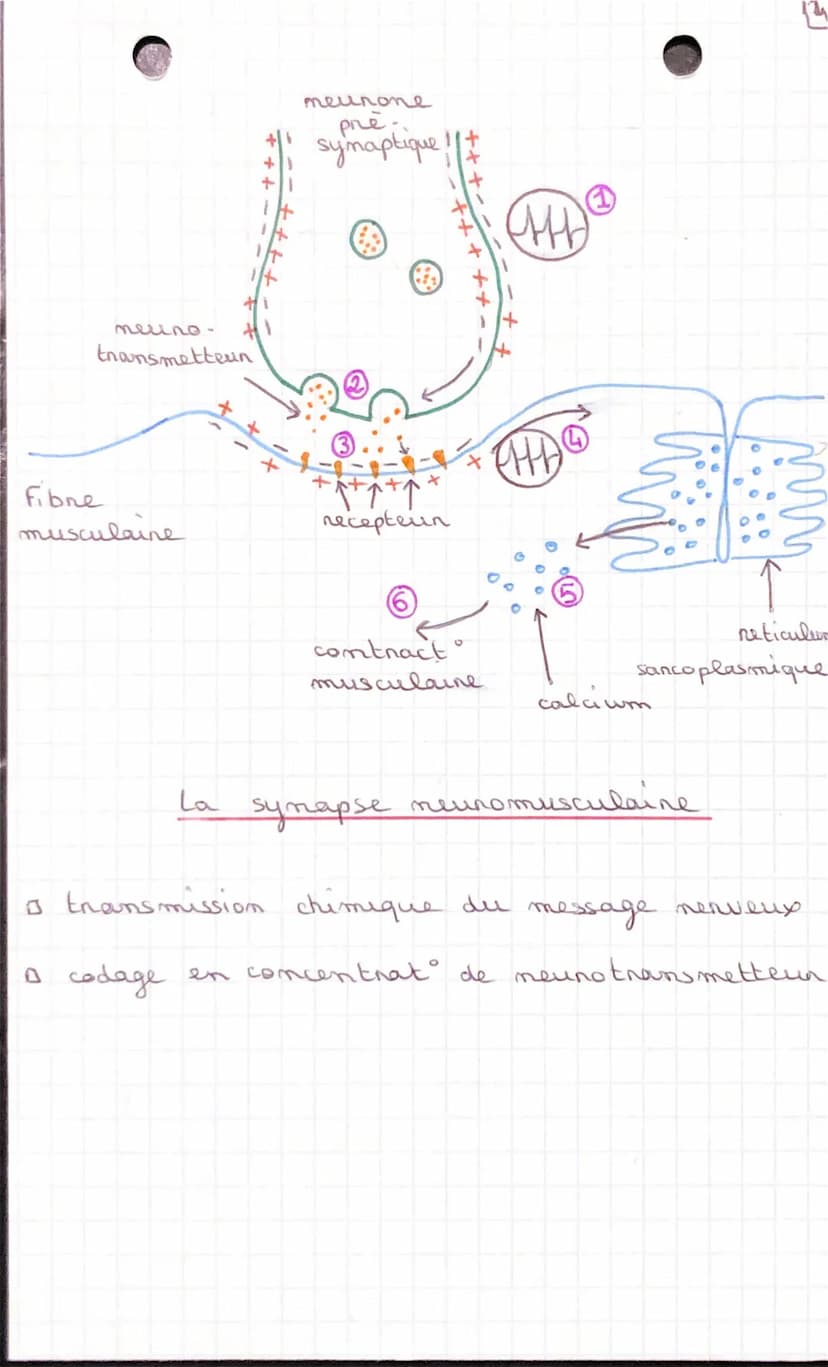 neurone
pré-
synaptique
1
neuro-
transmetteur
2
3
4
Fibre
musculaire
recepteur
5
6
contract°
musculaire
reticulum
sarcoplasmique
calcium
La synapse neuromusculaire
transmission chimique du message nerveux
codage en concentrat° de neurotransmetteur